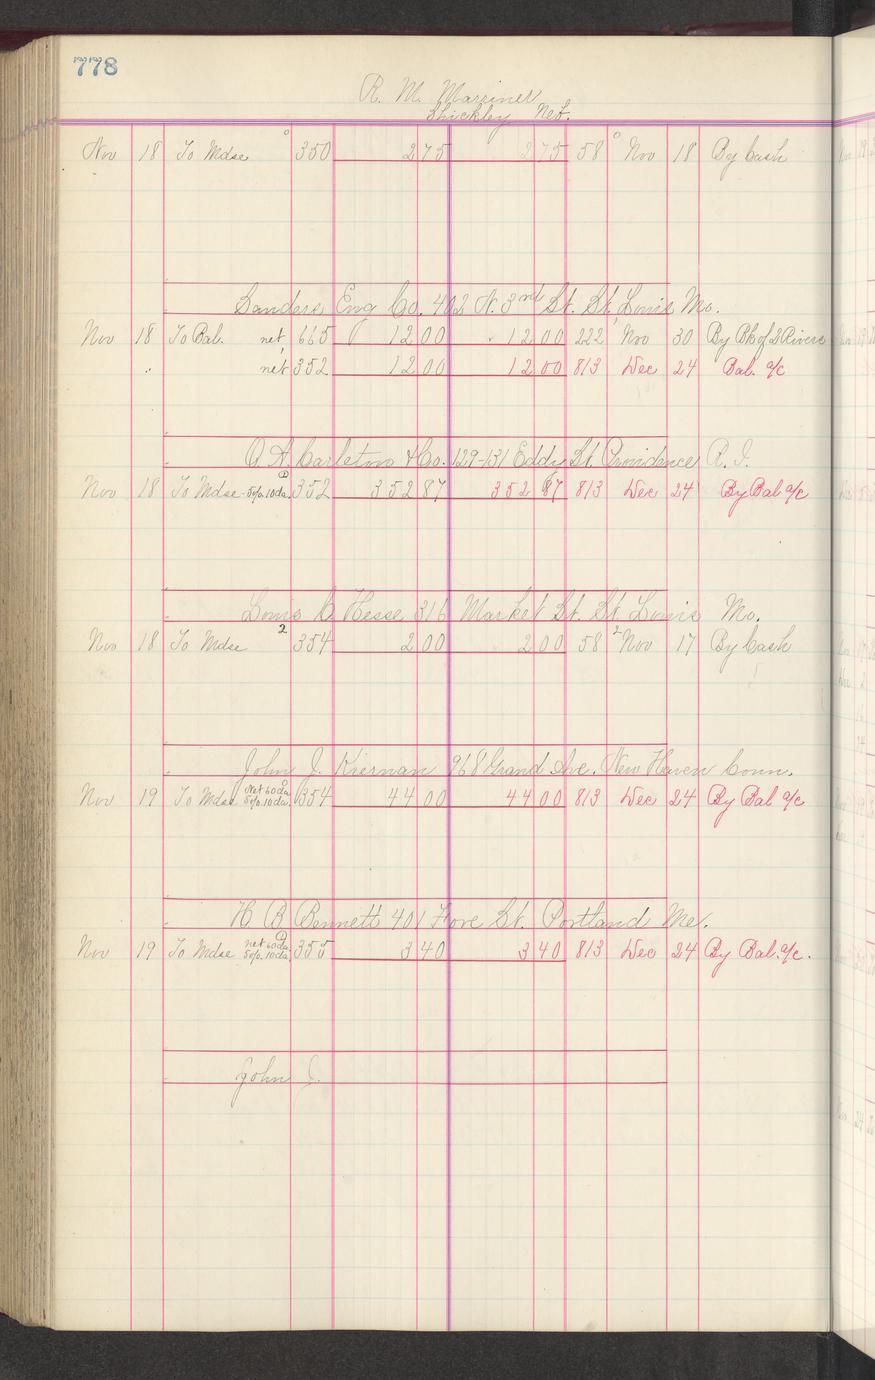 778
R. M. Marriner
Shickley Neb.
Nov 18 To Mdse 0 350 2 75 2 75 58 0 Nov 18 By Cash
Sanders Eng Co. 402 N. 3rd St. St. Louis Mo.
Nov 18 To Bal. net 665 12 00 12 00 222 Nov 30 By Bk of 2 Rivers
" net 352 12 00 12 00 813 Dec 24 Bal. a/c
A. Carleton & Co. 129-131 Eddy St. Providence R. I.
Nov 18 To Mdse 5% 10 da. 352 352 87 352 87 813 Dec 24 By Bal a/c
Louis C Hesse 316 Market St. St. Louis Mo.
Nov 18 To Mdse 2 354 2 00 2 00 58 2 Nov 17 By Cash
John J. Kiernan 968 Grand Ave. New Haven Conn.
Nov 19 To Mdse Net 60 da. 5% 10 da. 354 44 00 44 00 813 Dec 24 By Bal a/c
H B Bennett 401 Fore St. Portland Me.
Nov 19 To Mdse net 60 da. 5% 10 da. 355 3 40 3 40 813 Dec 24 By Bal. a/c.
John J.